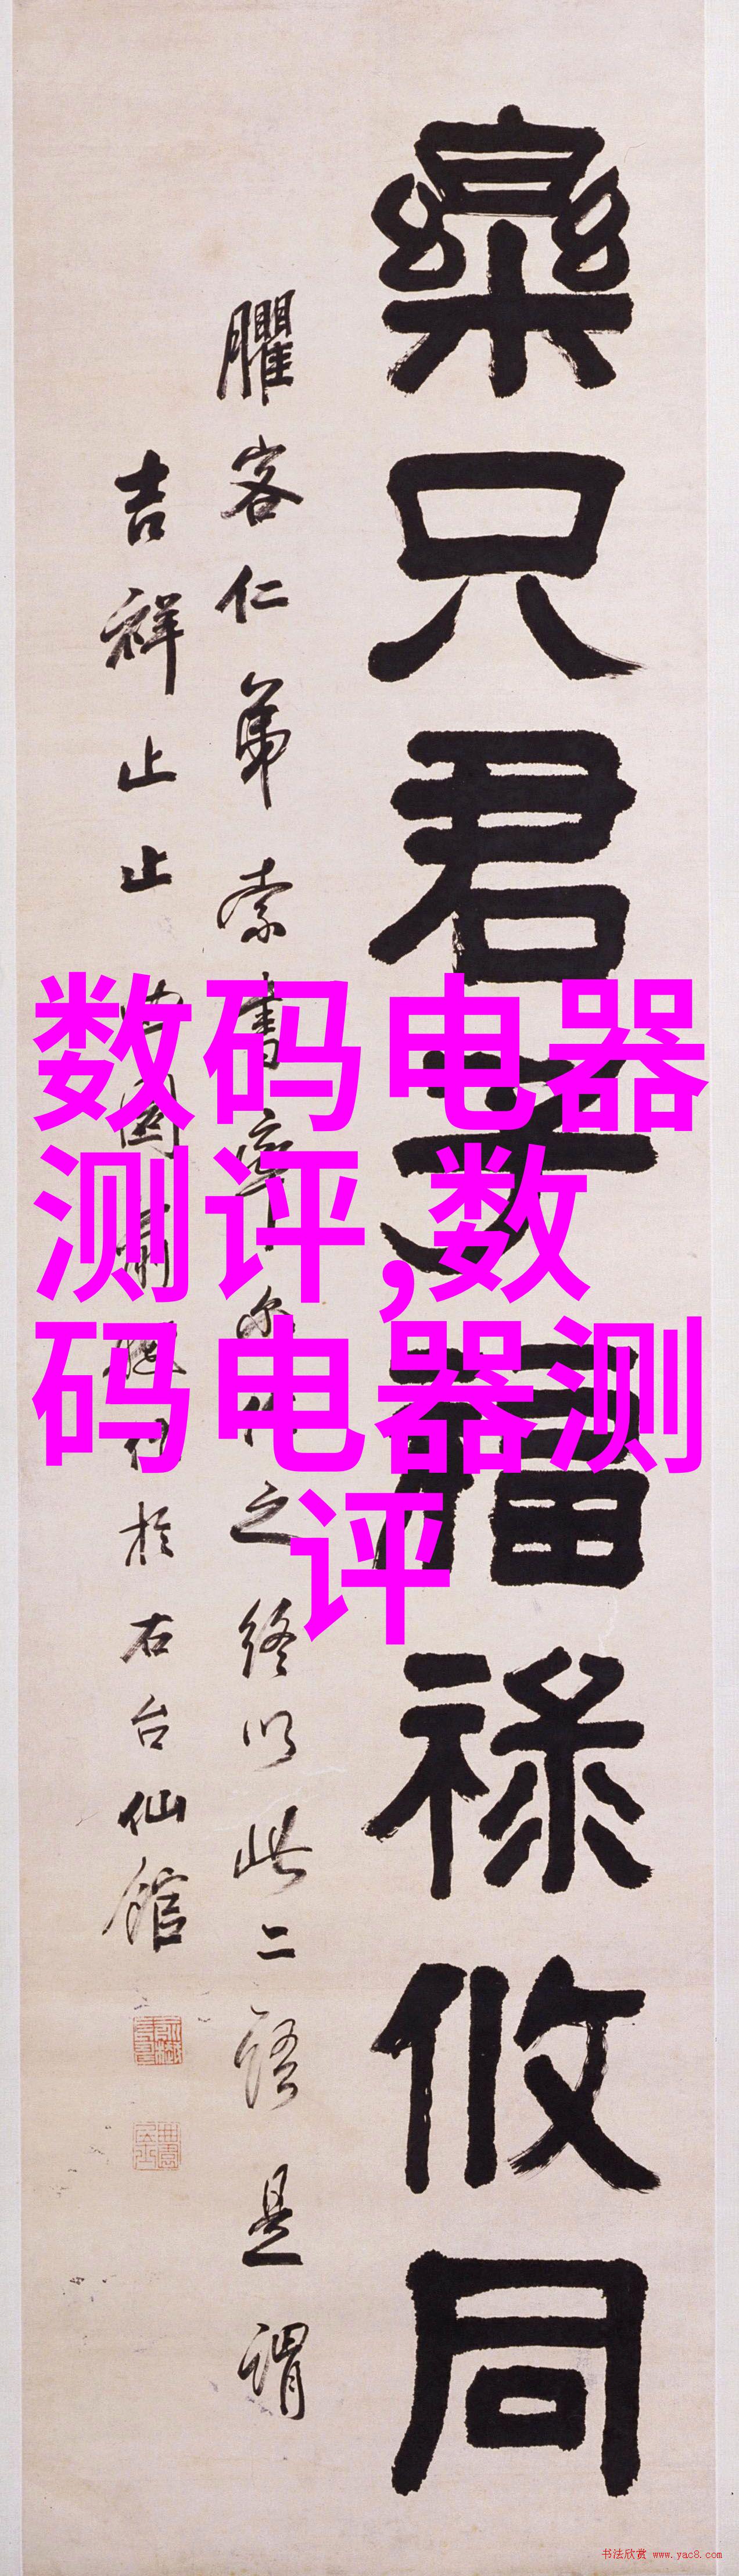 樂只君子福祿攸同
臞客仁弟索書率爾作之終以此二語是謂
吉祥止止 於右台仙館
数码电器
测评,数
码电器测
评
书法欣赏 www.yac8.com